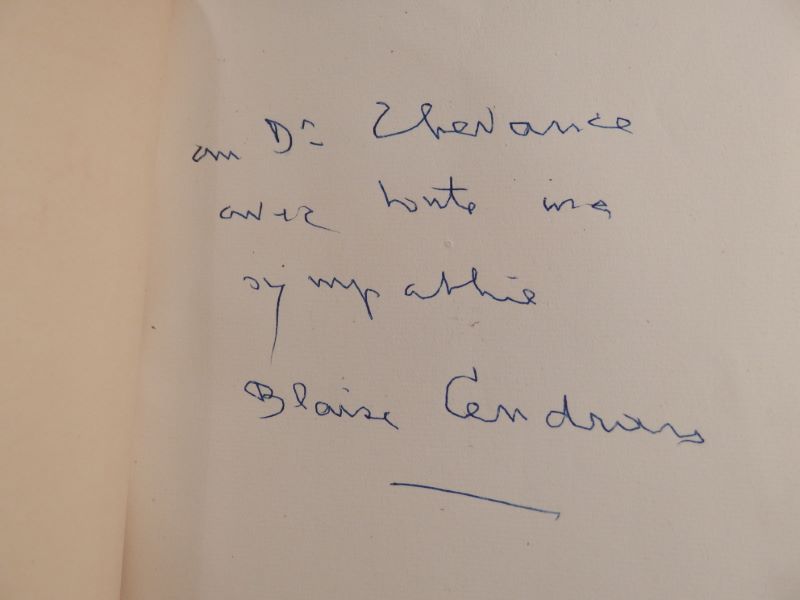 au Dr Chevance
avec toute ma
sympathie
Blaise Cendrars